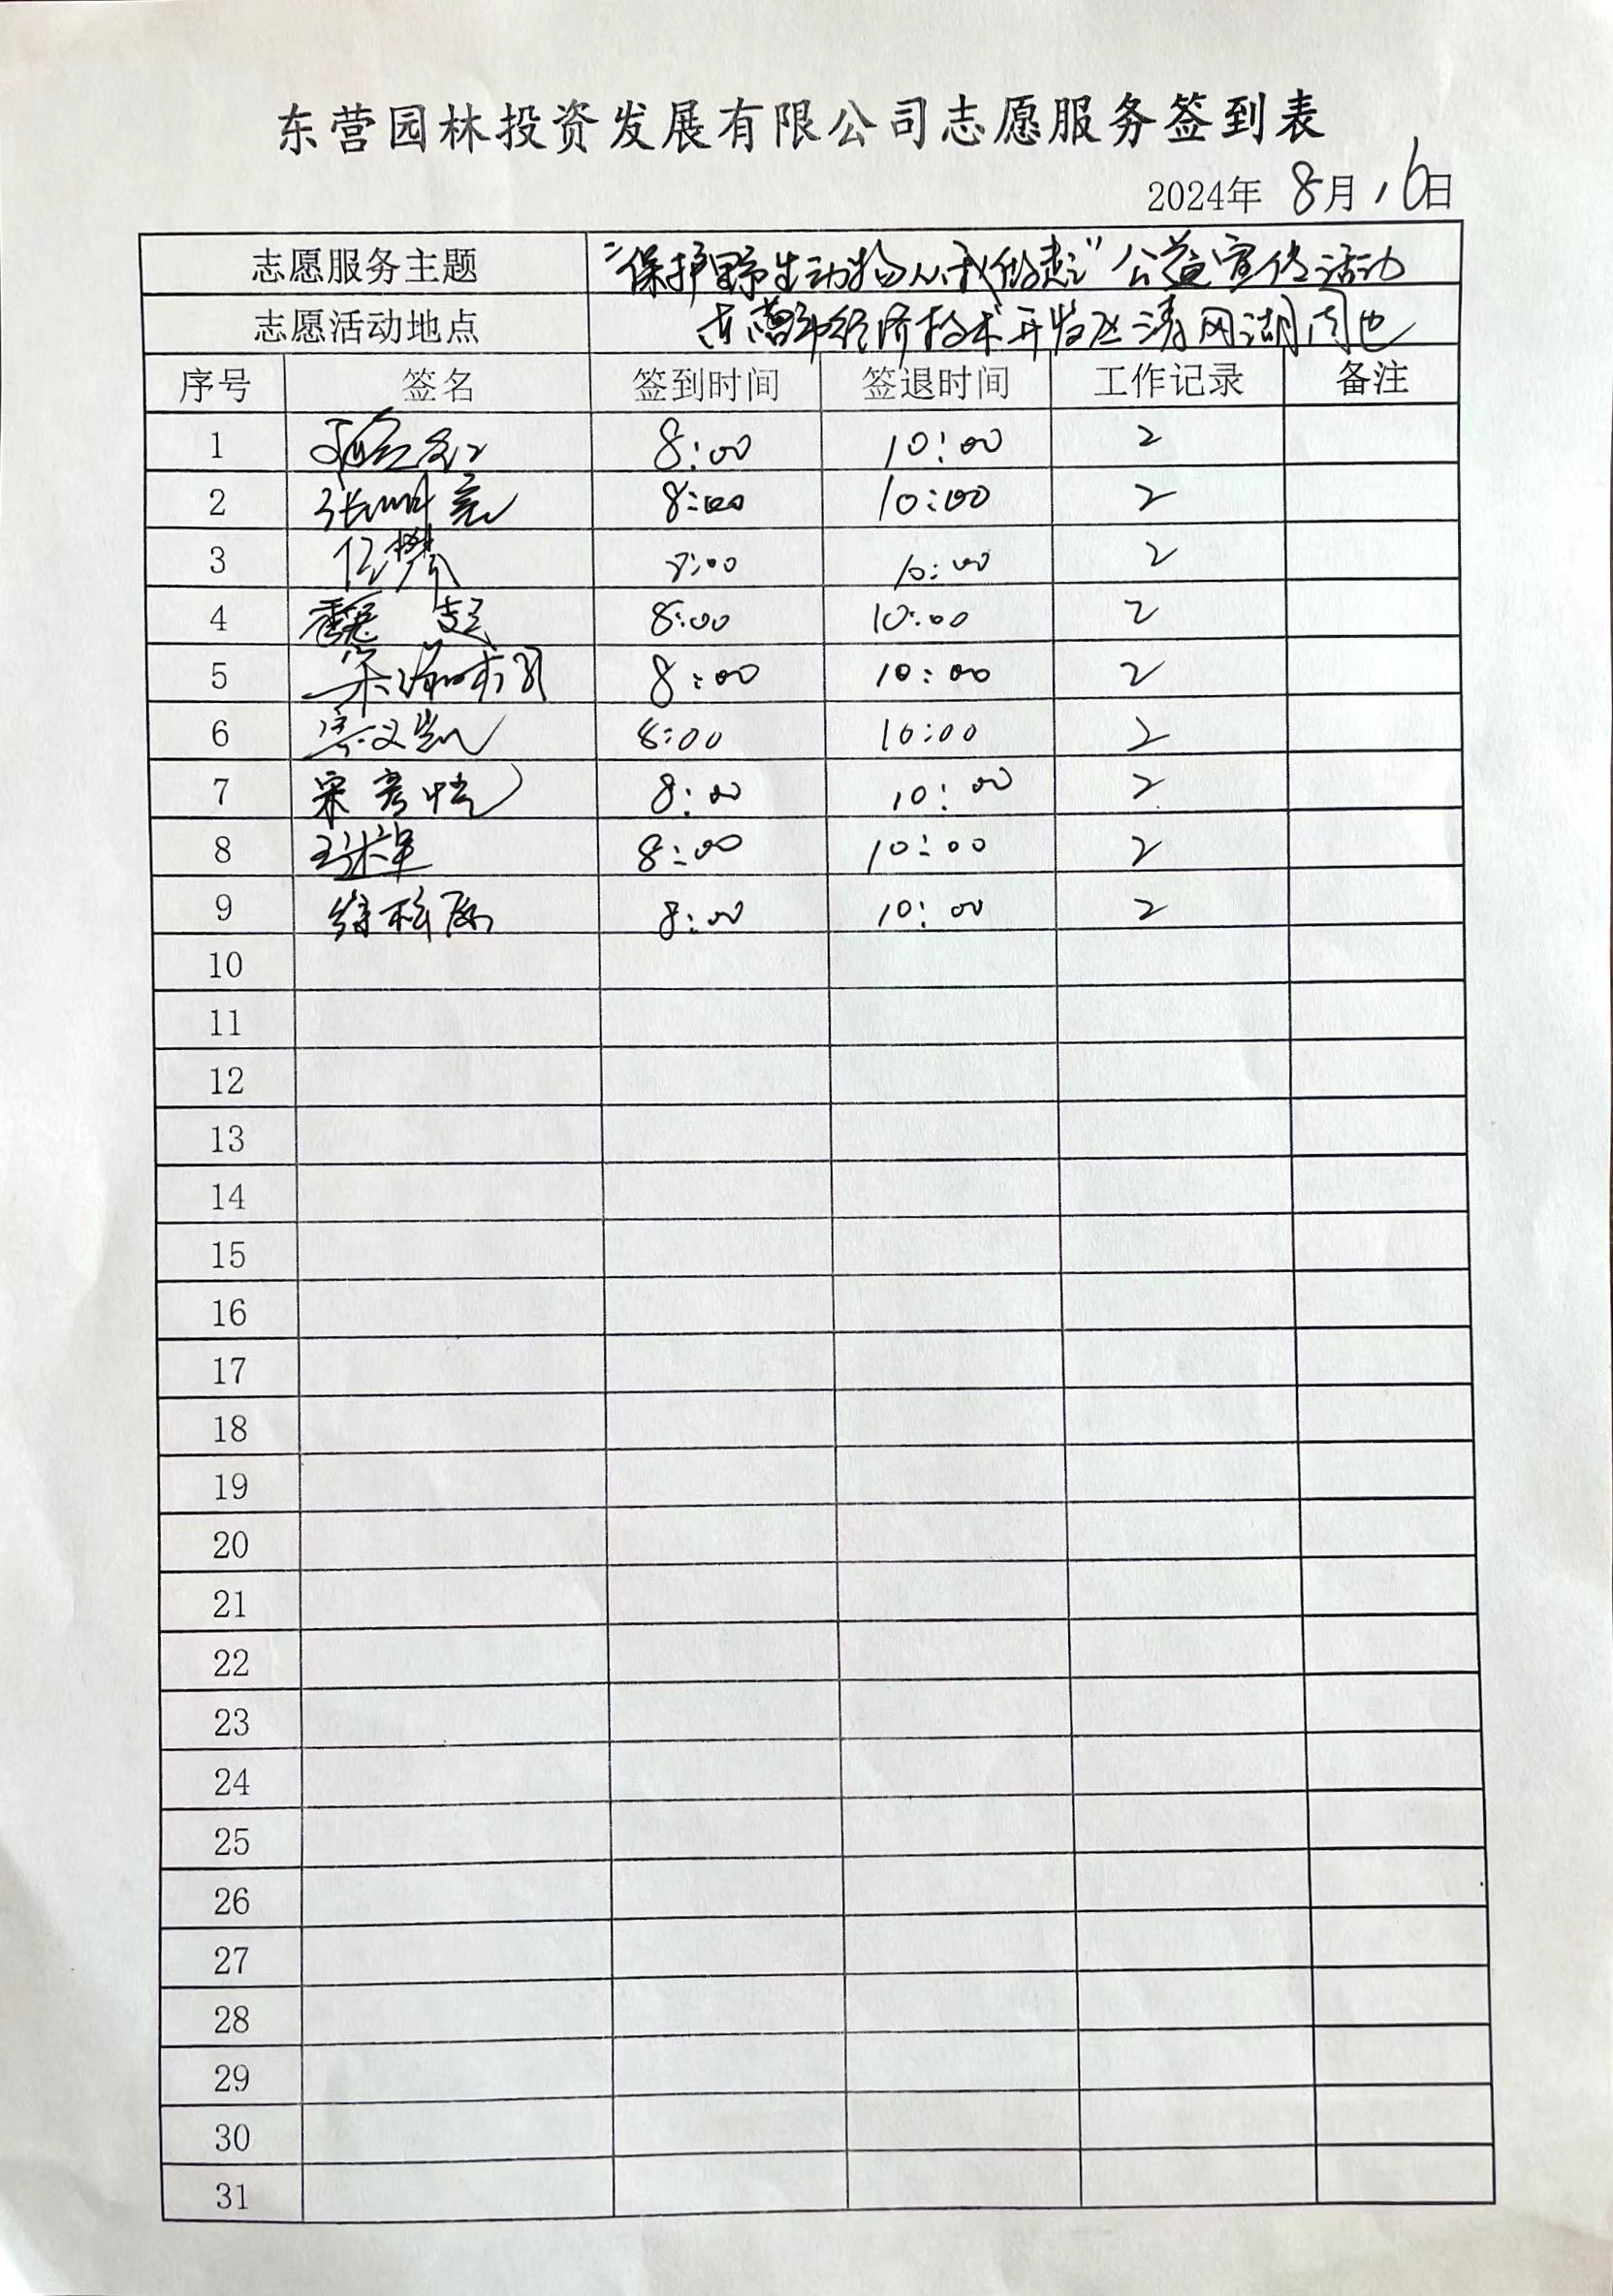 东营园林投资发展有限公司志愿服务签到表
2024年 8月16日
志愿服务主题 "保护野生动物从我做起"公益宣传活动
志愿活动地点 东营市经济技术开发区清风湖周边
序号 签名 签到时间 签退时间 工作记录 备注
1 8:00 10:00 2
2 张明亮 8:00 10:00 2
3 任攀 8:00 10:00 2
4 魏超 8:00 10:00 2
5 8:00 10:00 2
6 8:00 10:00 2
7 宋彦恺 8:00 10:00 2
8 8:00 10:00 2
9 8:00 10:00 2
10
11
12
13
14
15
16
17
18
19
20
21
22
23
24
25
26
27
28
29
30
31